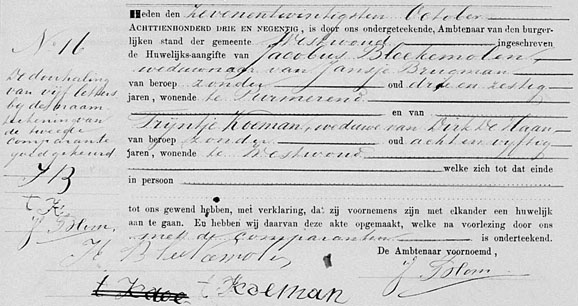 Heden den zevenentwintigsten October
ACHTTIENHONDERD DRIE EN NEGENTIG, is door ons ondergeteekende, Ambtenaar van den burger-
lijken stand der gemeente Westwoud ingeschreven
de Huwelijks-aangifte van Jacobus Bleekemolen,
weduwnaar van Jansje Brugman
van beroep zonder oud drie en zestig
jaren, wonende te Purmerend
en van
Trijntje Koeman, weduwe van Dirk de Haan
van beroep zonder oud acht en vijftig
jaren, wonende te Westwoud
welke zich tot dat einde
in persoon
tot ons gewend hebben, met verklaring, dat zij voornemens zijn met elkander een huwelijk
aan te gaan. En hebben wij daarvan deze akte opgemaakt, welke na voorlezing door ons
met de comparanten is onderteekend.
De Ambtenaar voornoemd,
J Bleekemolen
J Blom
t Koeman
No 16
De doorhaling
van vijf letters
bij de naam
tekening van
de tweede
comparante
goedgekeurd
J B
t K
J Blom,